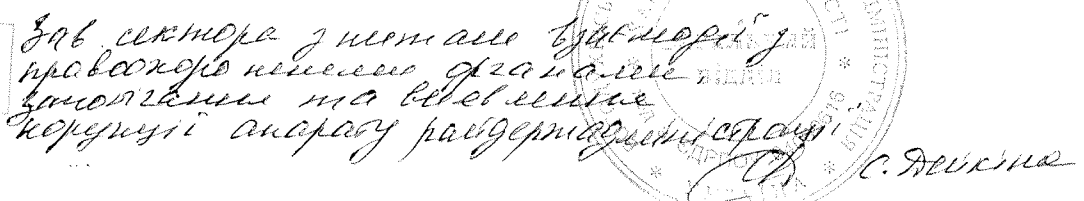 Зав сектора з питань взаємодії з
правоохоронними органами,
запобігання та виявлення
корупції апарату райдержадміністрації
С. Дейкіна